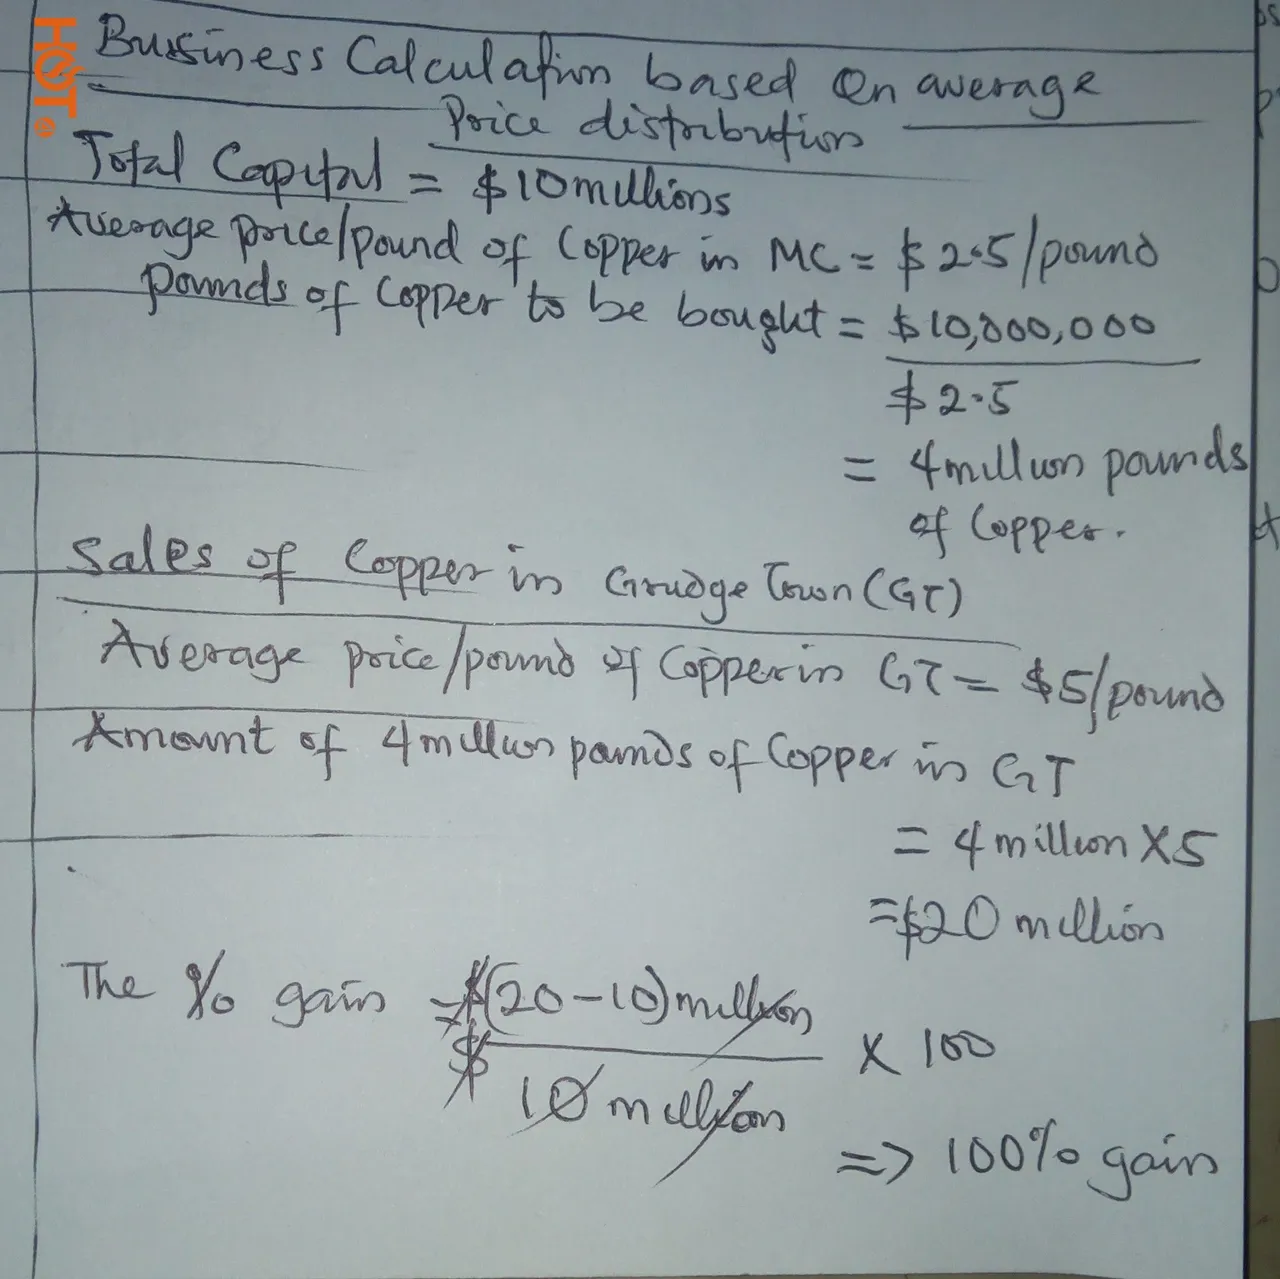 HOT
Bussiness Calculation based On average
Price distribution
Total Capital = $10 millions
Average price/pound of Copper in MC = $2.5/pound
pounds of Copper to be bought = $10,000,000
$2.5
= 4 million pounds
of Copper.
Sales of Copper in Grudge Town (GT)
Average price/pound of Copper in GT = $5/pound
Amount of 4 million pounds of Copper in GT
= 4 million X 5
= $20 million
The % gain = $(20-10) million
X 100
$ 10 million
=> 100% gain